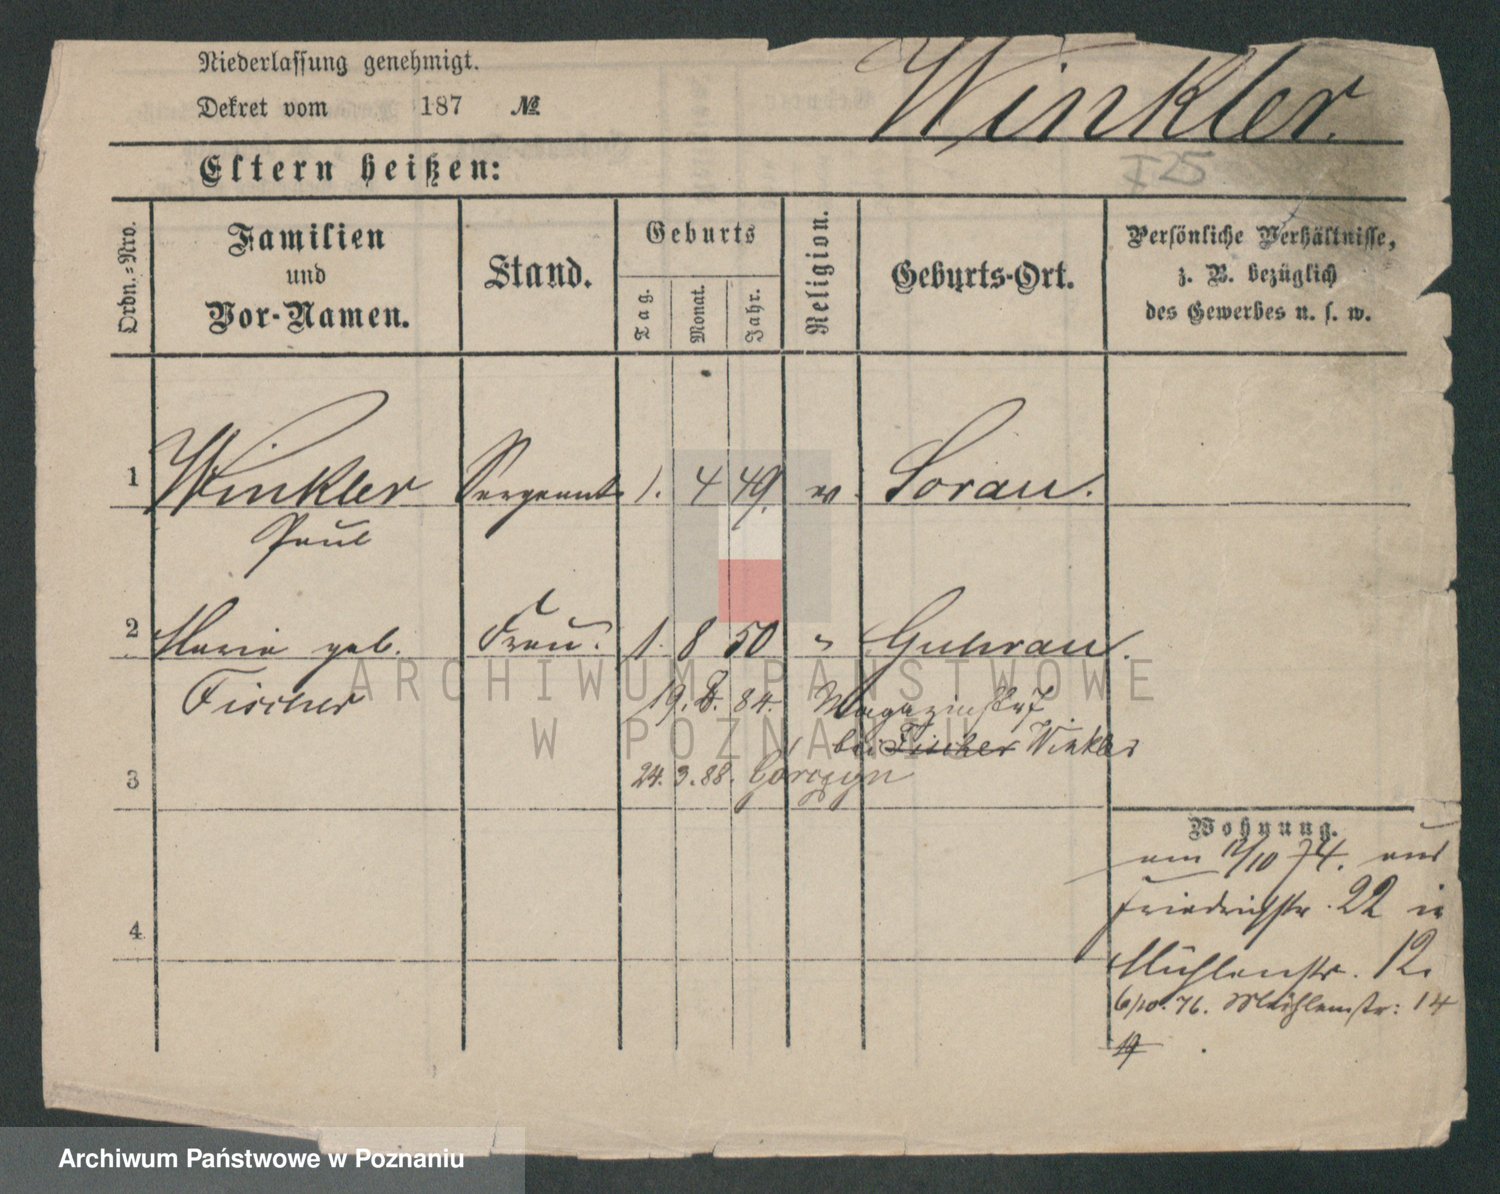 Niederlassung genehmigt.
Dekret vom 187 №
Winkler.
I 25
Eltern heißen:
Ordn.-Nro.
Familien
und
Vor-Namen.
Stand.
Geburts
Tag.
Monat.
Jahr.
Religion.
Geburts-Ort.
Persönliche Verhältnisse,
z. B. bezüglich
des Gewerbes u. s. w.
1 Winkler Sergeant 1. 4 49. ev. Sorau.
Paul
2 Marie geb. Frau. 1. 8 50 " Guhrau.
Fischer
19. 8. 84. Magazinstr. 7
bei Fischer Winkler
3 24. 3. 88. Gorczyn
Wohnung.
am 12/10 74. aus
Friedrichstr. 22 in
Mühlenstr. 12.
6/10. 76. Mühlenstr: 14
19
4
ARCHIWUM PAŃSTWOWE
W POZNANIU
Archiwum Państwowe w Poznaniu